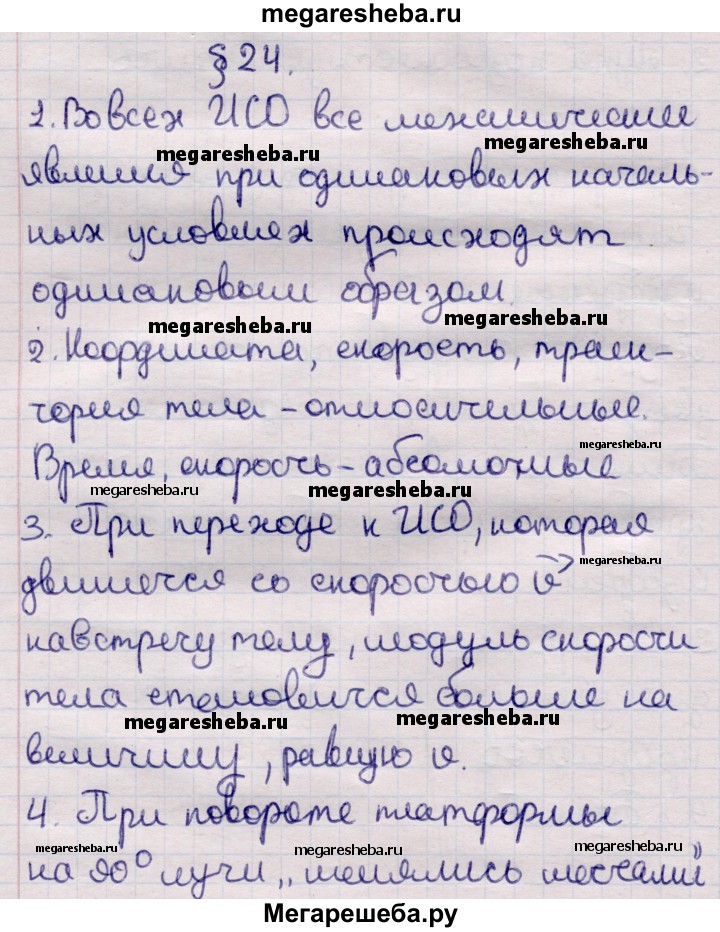 megaresheba.ru
§ 24.
1. Во всех ИСО все механические
megaresheba.ru megaresheba.ru
явления при одинаковых началь-
ных условиях происходят
megaresheba.ru
одинаковым образом.
megaresheba.ru megaresheba.ru
2. Координата, скорость, траек-
тория тела – относительные.
megaresheba.ru
Время, скорость – абсолютные
megaresheba.ru megaresheba.ru
3. При переходе к ИСО, которая
megaresheba.ru
движется со скоростью v
навстречу телу, модуль скорости
тела становится больше на
megaresheba.ru megaresheba.ru
величину, равную v.
4. При повороте платформы
megaresheba.ru megaresheba.ru megaresheba.ru
на 90° лучи „менялись местами"
Мегарешеба.ру